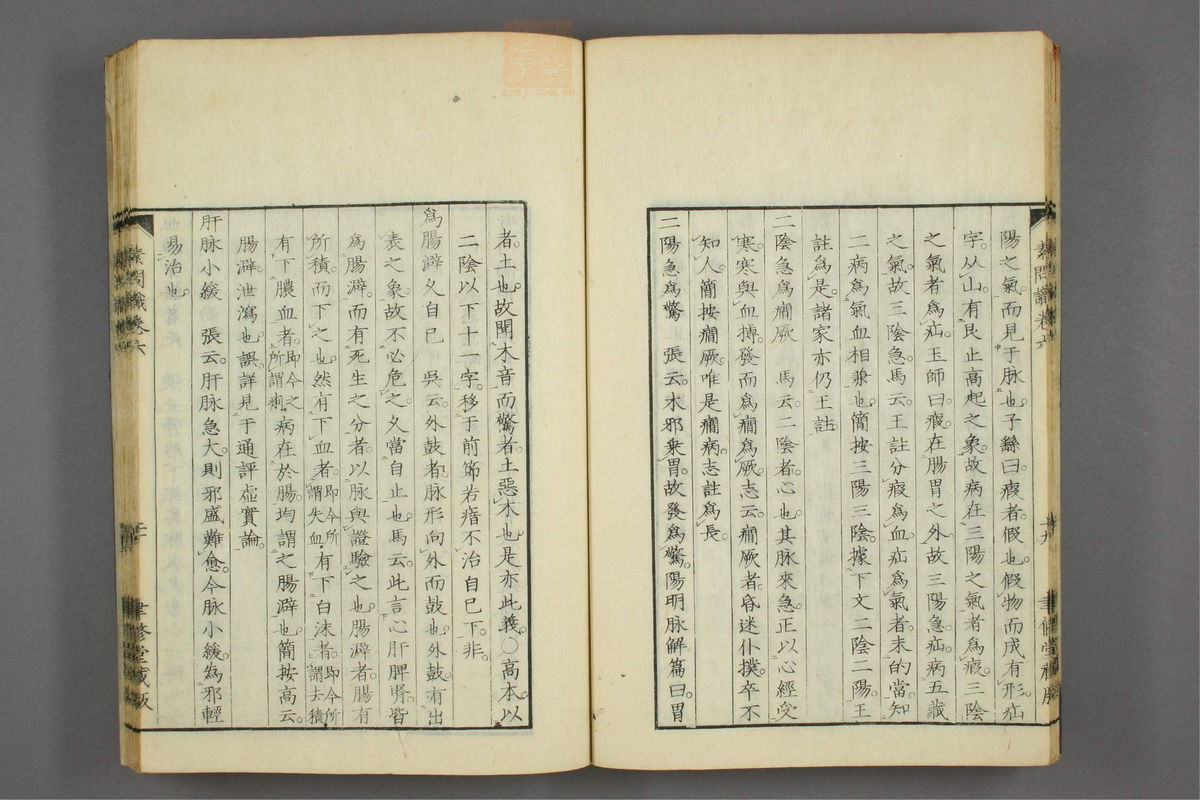 陽之氣。而見于脉也。子繇曰。瘕者。假也。假物而成有形。疝
字。从山。有艮止高起之象。故病在三陽之氣者。爲瘕。三陰
之氣者。爲疝。玉師曰。瘕。在腸胃之外。故三陽急。疝。病五藏
之氣。故三陰急。馬云。王註分瘕爲血。疝爲氣者。未的當。知
二病爲氣血相兼也。簡按三陽三陰。據下文二陰二陽。王
註爲是。諸家亦仍王註
二陰急爲癇厥　馬云。二陰者。心也。其脉來急。正以心經受
寒。寒與血搏。發而爲癇爲厥。志云。癇厥者。昏迷仆撲。卒不
知人。簡按癇厥。唯是癇病。志註爲長。
二陽急爲驚　張云。木邪乘胃。故發爲驚。陽明脉解篇曰。胃
素問識卷六
廿九
聿修堂藏版
者。土也。故聞木音而驚者。土惡木也。是亦此義。○高本以
二陰以下十一字。移于前節若瘖不治自已下。非。
爲腸澼久自已　吳云。外鼓者。脉形向外而鼓也。外鼓。有出
表之象。故不必危。之久當自止也。馬云。此言心肝脾腎皆
爲腸澼。而有死生之分者。以脉與證驗之也。腸澼者。腸有
所積。而下之也。然有下血者。即今所謂失血。有下白沫者。即今所謂去積
有下膿血者。即今之所謂痢。病在於腸。均謂之腸澼也。簡按高云。
腸澼。泄瀉也。誤。詳見于通評虛實論。
肝脉小緩　張云。肝脉急大。則邪盛難愈。今脉小緩。為邪輕
易治也。
素問識卷六
三十
聿修堂藏版
zysj.com.cn